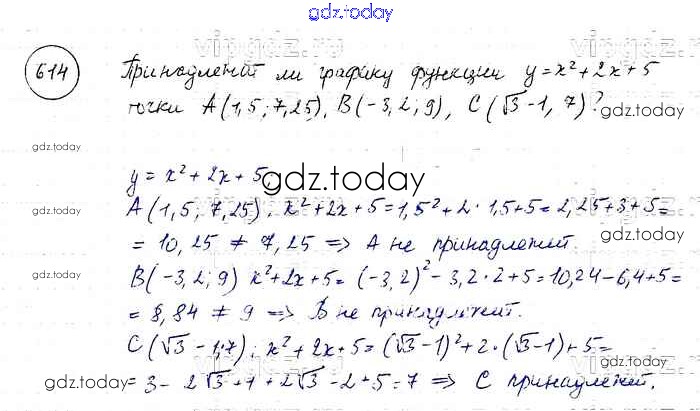 gdz.today
614
Принадлежит ли графику функции y = x² + 2x + 5
точки A(1,5; 7,25), B(-3,2; 9), C(√3 - 1, 7)?
gdz.today
gdz.today
y = x² + 2x + 5
gdz.today
A(1,5; 7,25); x² + 2x + 5 = 1,5² + 2 · 1,5 + 5 = 2,25 + 3 + 5 =
gdz.today
= 10,25 ≠ 7,25 => A не принадлежит.
gdz.today
B(-3,2; 9) x² + 2x + 5 = (-3,2)² - 3,2 · 2 + 5 = 10,24 - 6,4 + 5 =
gdz.today
= 8,84 ≠ 9 => B не принадлежит.
C(√3 - 1; 7); x² + 2x + 5 = (√3 - 1)² + 2 · (√3 - 1) + 5 =
gdz.today
= 3 - 2√3 + 1 + 2√3 - 2 + 5 = 7 => C принадлежит.
gdz.today
gdz.today